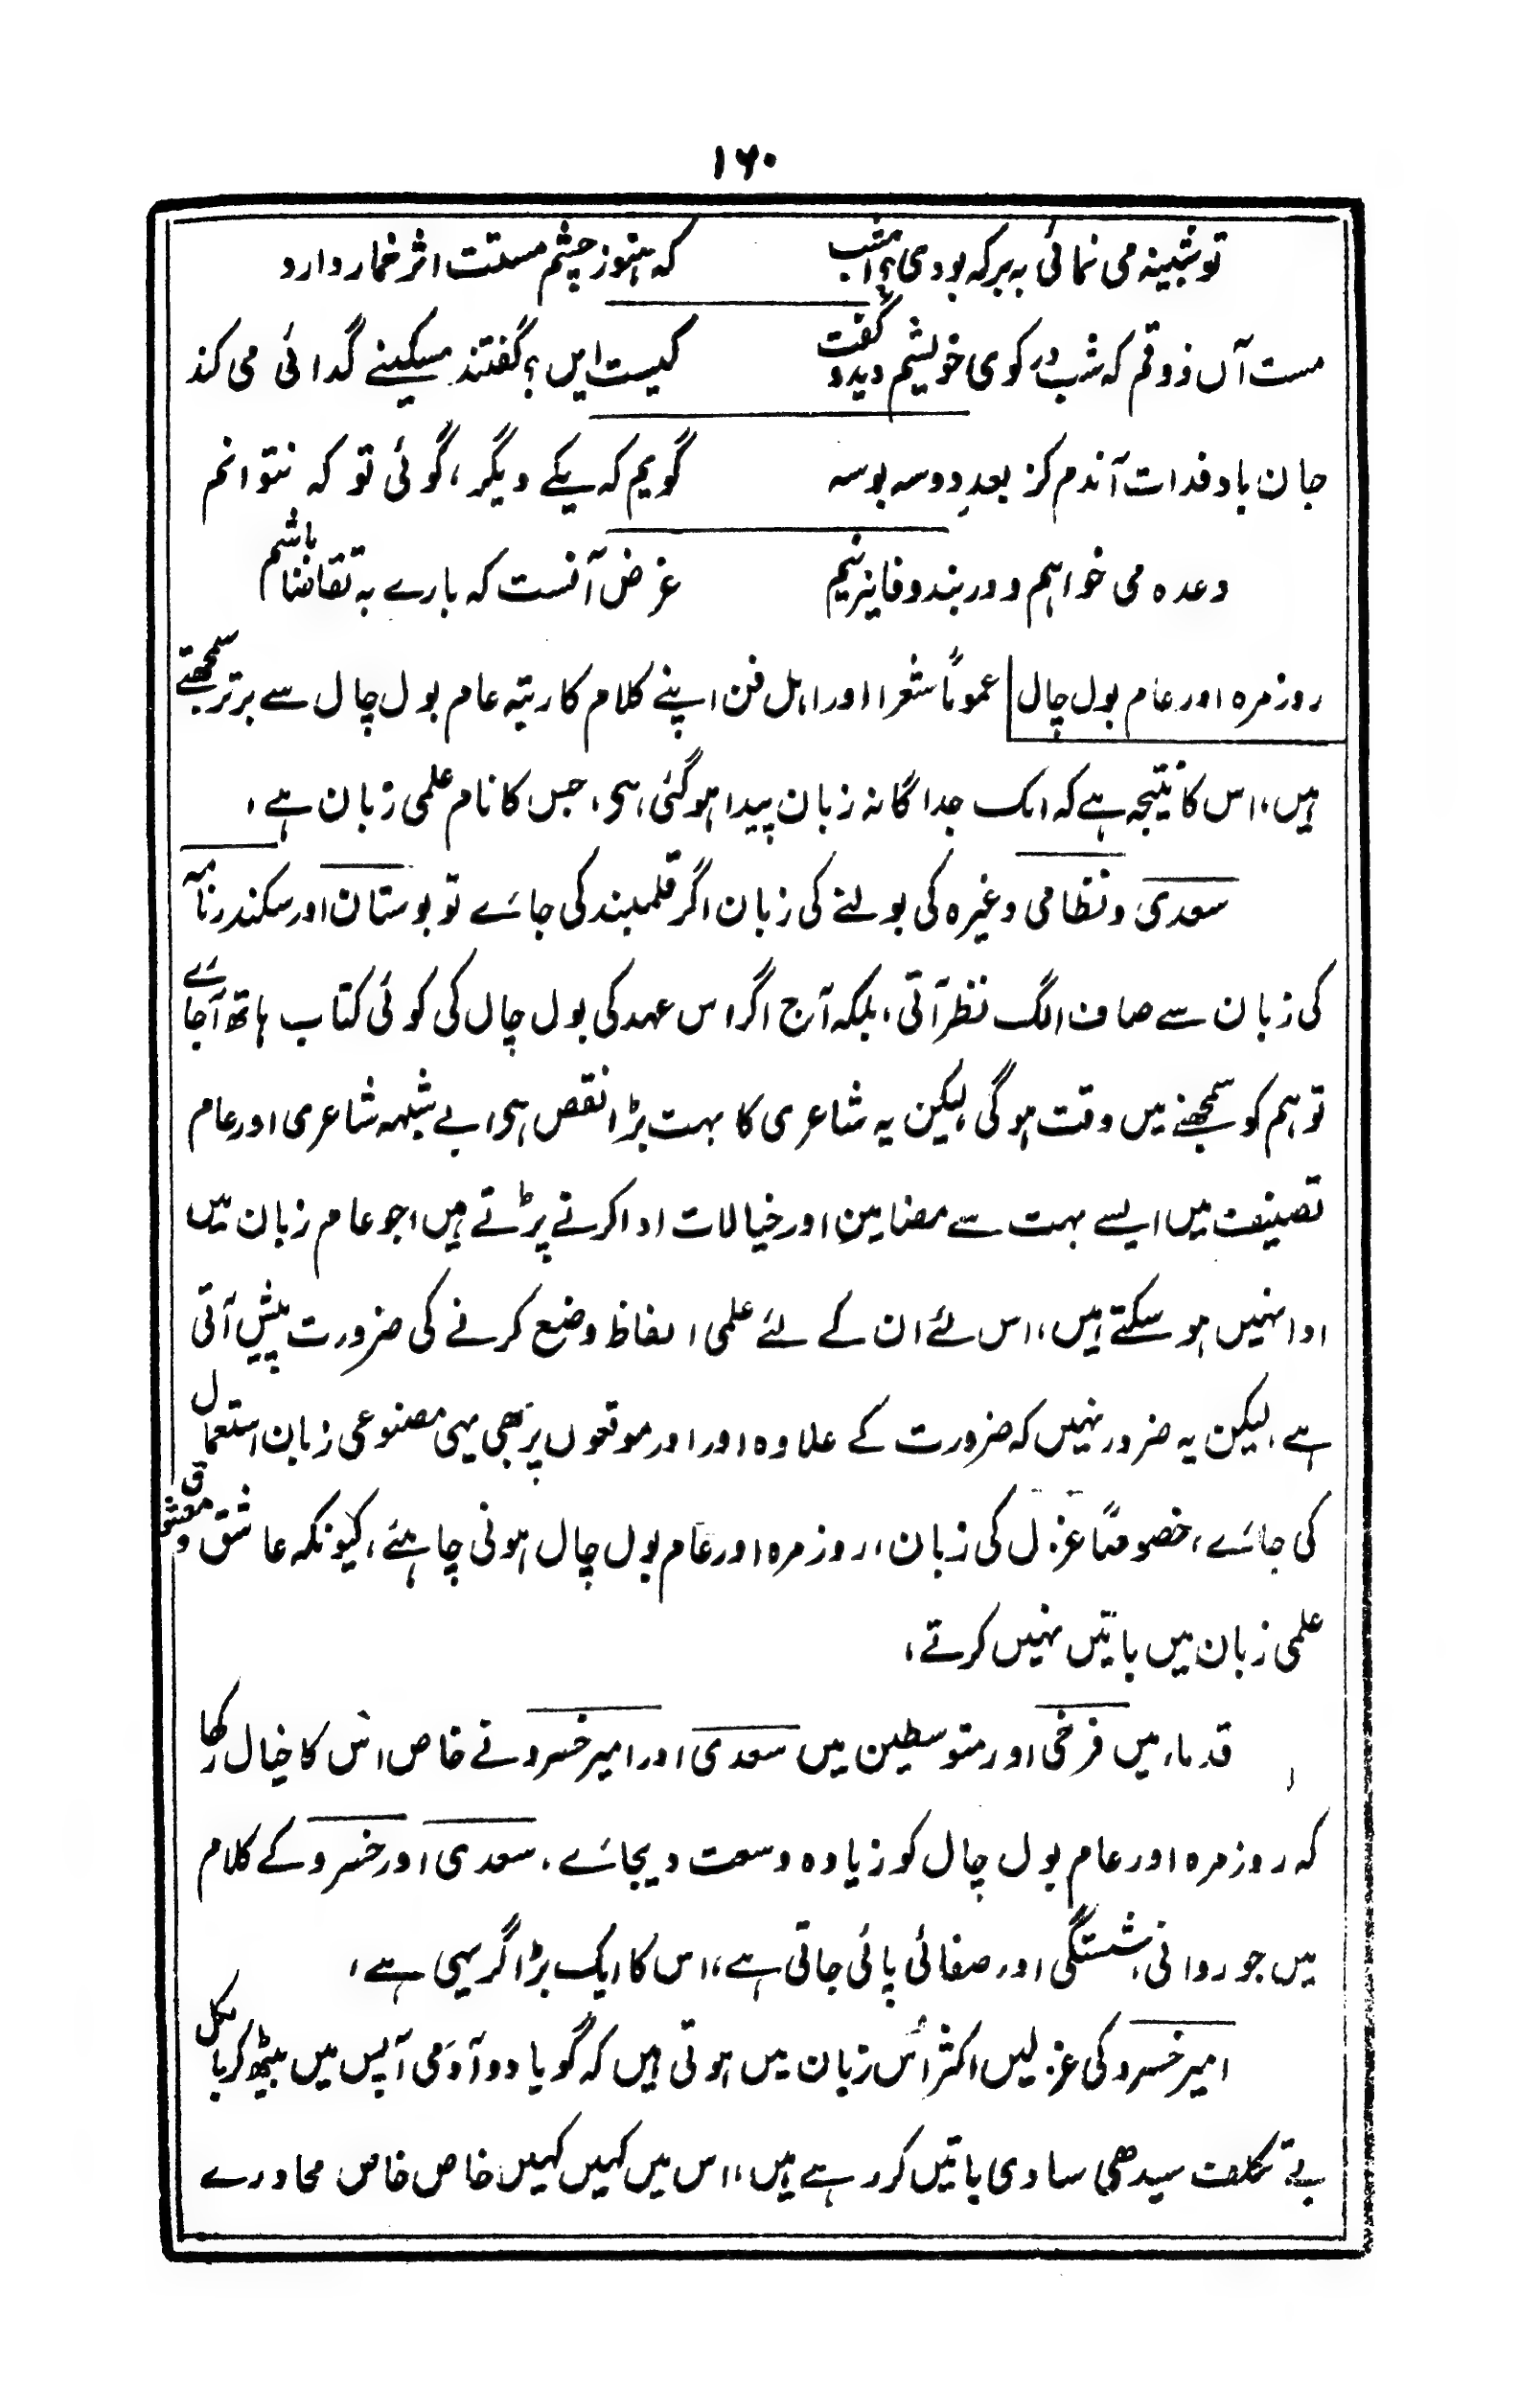 ۱۶۰
تو شبینہ می نمائی بہ برکہ بودی؟ امشب کہ ہنوز چشم مستت اثر خمار دارد
مست آں ذوقم کہ شب در کوی خویشم دید و گفت کیست ایں؟ گفتند مسکینے گدائی می کند
جان باد فدات آندم کز بعدِ دوسہ بوسہ گویم کہ یکے دیگر، گوئی تو کہ نتوانم
وعدہ می خواہم و در بند وفا نیز نیم غرض آنست کہ بارے بہ تقاضا باشم
روزمرہ اور عام بول چال عموماً شعرا اور اہل فن اپنے کلام کا رتبہ عام بول چال سے برتر سمجھتے
ہیں، اس کا نتیجہ ہے کہ ایک جداگانہ زبان پیدا ہوگئی ہی، جس کا نام علمی زبان ہے،
سعدی و نظامی وغیرہ کی بولنے کی زبان اگر قلمبند کی جائے تو بوستان اور سکندرنامہ
کی زبان سے صاف الگ نظر آتی، بلکہ آج اگر اس عہد کی بول چال کی کوئی کتاب ہاتھ آجائے
تو ہم کو سمجھنے میں وقت ہوگی لیکن یہ شاعری کا بہت بڑا نقص ہی، بے شبہہ شاعری اور عام
تصنیف میں ایسے بہت سے مضامین اور خیالات ادا کرنے پڑتے ہیں، جو عام زبان میں
ادا نہیں ہو سکتے ہیں، اس لئے ان کے لئے علمی الفاظ وضع کرنے کی ضرورت پیش آتی
ہے، لیکن یہ ضرور نہیں کہ ضرورت کے علاوہ اور اور موقعوں پر بھی یہی مصنوعی زبان استعمال
کی جائے، خصوصاً غزل کی زبان، روزمرہ اور عام بول چال ہونی چاہئے، کیونکہ عاشق و معشوق
علمی زبان میں باتیں نہیں کرتے،
قدماء میں فرخی اور متوسطین میں سعدی اور امیر خسرو نے خاص اس کا خیال رکھا
کہ روزمرہ اور عام بول چال کو زیادہ وسعت دیجائے، سعدی اور خسرو کے کلام
میں جو روانی، شستگی اور صفائی پائی جاتی ہے، اس کا ایک بڑا گر یہی ہے،
امیر خسرو کی غزلیں اکثر اُس زبان میں ہوتی ہیں کہ گویا دو آدمی آپس میں بیٹھ کر بالکل
بے تکلف سیدھی سادی باتیں کر رہے ہیں، اس میں کہیں کہیں خاص خاص محاورے